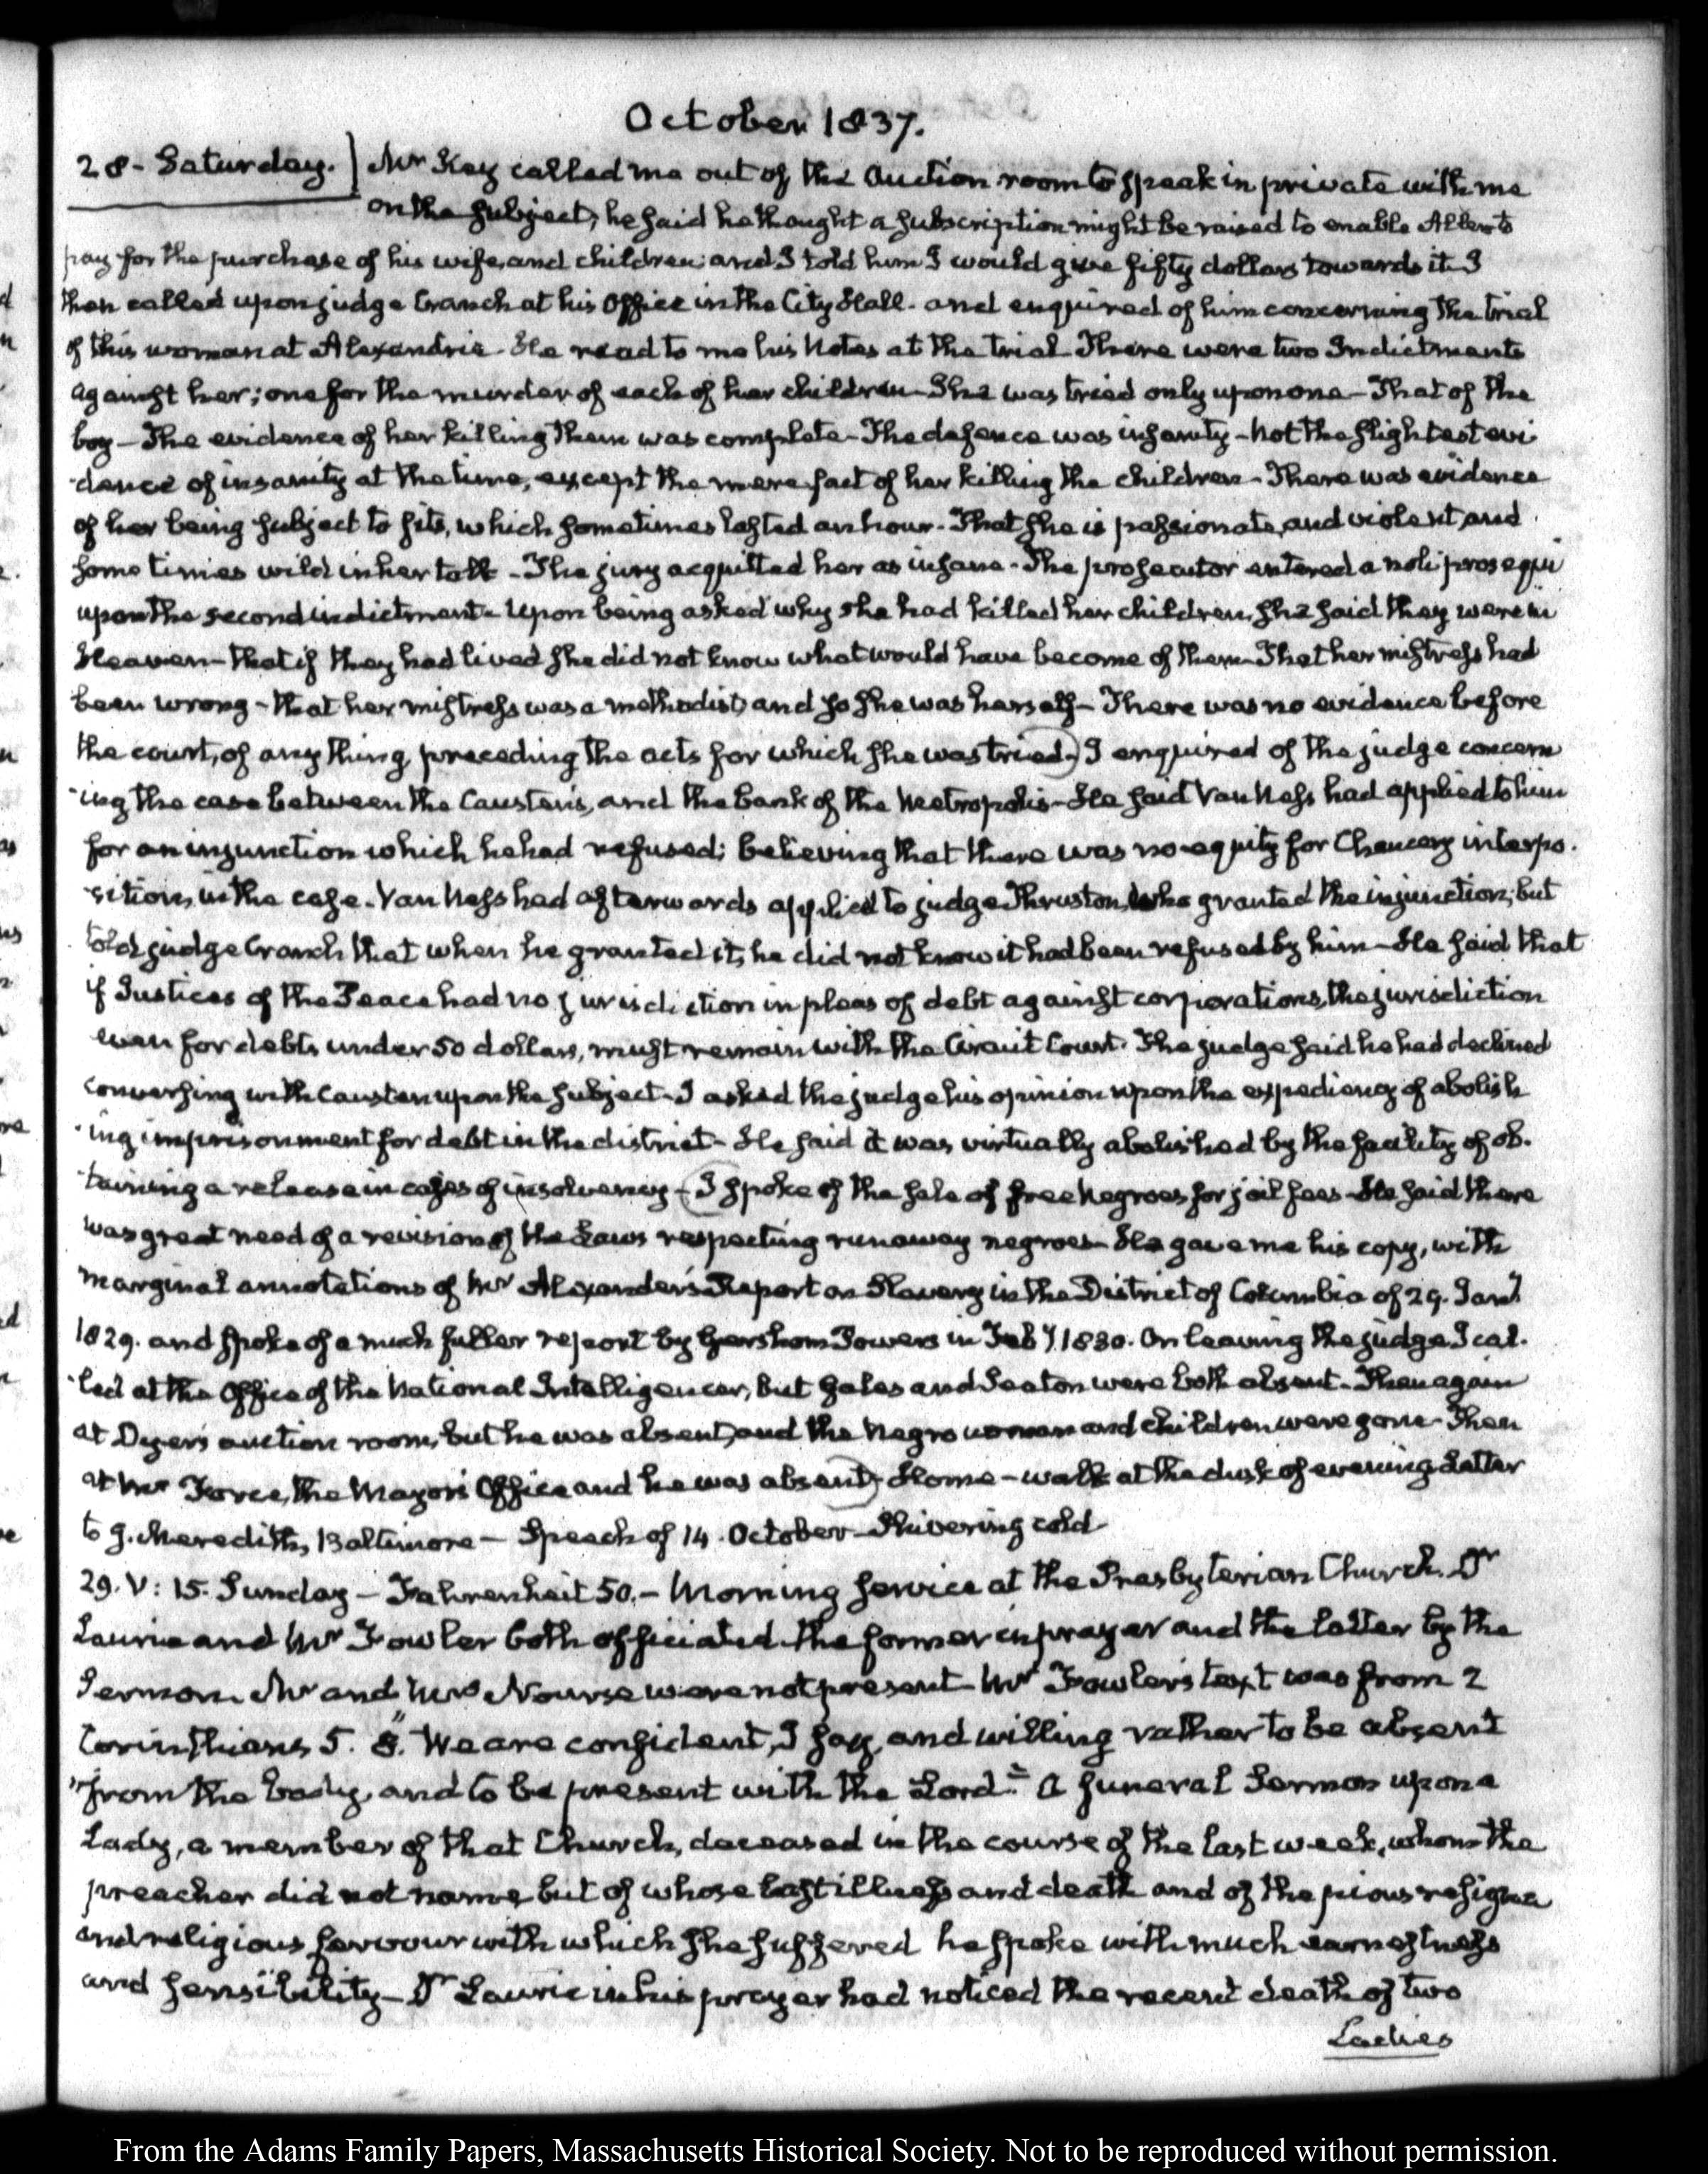 October 1837.
28 - Saturday. Mr Key called me out of the Auction room to speak in private with me
on the subject, he said he thought a subscription might be raised to enable Allen to
pay for the purchase of his wife, and children and I told him I would give fifty dollars towards it. I
then called upon judge Cranch at his Office in the City Hall - and enquired of him concerning the trial
of this woman at Alexandria - He read to me his Notes at the trial There were two Indictments
against her; one for the murder of each of her children - She was tried only upon one - That of the
boy - The evidence of her killing them was complete - The defence was insanity - Not the slightest evi
-dence of insanity at the time, except the mere fact of her killing the children - There was evidence
of her being subject to fits, which sometimes lasted an hour - That she is passionate, and violent, and
some times wild in her talk - The jury acquitted her as insane - The prosecutor entered a noli prosequi
upon the second indictment - Upon being asked why she had killed her children, she said they were in
Heaven - that if they had lived she did not know what would have become of them - That her mistress had
been wrong - that her mistress was a methodist, and so she was herself - There was no evidence before
the court, of any thing preceding the acts for which she was tried - I enquired of the judge concern
-ing the case between the Causten's, and the bank of the Metropolis - He said Van Ness had applied to him
for an injunction which he had refused; believing that there was no equity for Chancery interpo-
-sition, in the case - Van Ness had afterwards applied to judge Thruston, who granted the injunction; but
told judge Cranch that when he granted it, he did not know it had been refused by him - He said that
if Justices of the Peace had no jurisdiction in pleas of debt against corporations, the jurisdiction
even for debts under 50 dollars, must remain with the Circuit Court. The judge said he had declined
conversing with Causten upon the subject - I asked the judge his opinion upon the expediency of abolish
-ing imprisonment for debt in the district - He said it was virtually abolished by the facility of ob-
-taining a release in cases of insolvency - I spoke of the sale of free Negroes for jail fees - He said there
was great need of a revision of the Laws respecting runaway negroes - He gave me his copy, with
marginal annotations of Mr Alexander's Report on Slavery in the District of Columbia of 29. Jany
1829. and spoke of a much fuller report by Gershom Powers in Feby 1830. On leaving the judge I cal-
-led at the Office of the National Intelligencer, but Gales and Seaton were both absent - Then again
at Dyer's auction room, but he was absent, and the Negro woman and children were gone - Then
at Mr Force, the Mayor's Office and he was absent - Home - walk at the dusk of evening Letter
to J. Meredith, Baltimore - Speech of 14. October - Shivering cold -
29. V: 15. Sunday - Fahrenheit 50. - Morning service at the Presbyterian Church. Dr
Laurie and Mr Fowler both officiated the former in prayer and the latter by the
Sermon. Mr and Mrs Nourse were not present - Mr Fowler's text was from 2
Corinthians 5. 8. "We are confident, I say, and willing rather to be absent
"from the body, and to be present with the Lord." A funeral Sermon upon a
Lady, a member of that Church, deceased in the course of the last week, whom the
preacher did not name, but of whose last illness and death and of the pious resigna
and religious fervour with which she suffered he spoke with much earnestness
and sensibility - Dr Laurie in his prayer had noticed the recent death of two
Ladies
From the Adams Family Papers, Massachusetts Historical Society. Not to be reproduced without permission.